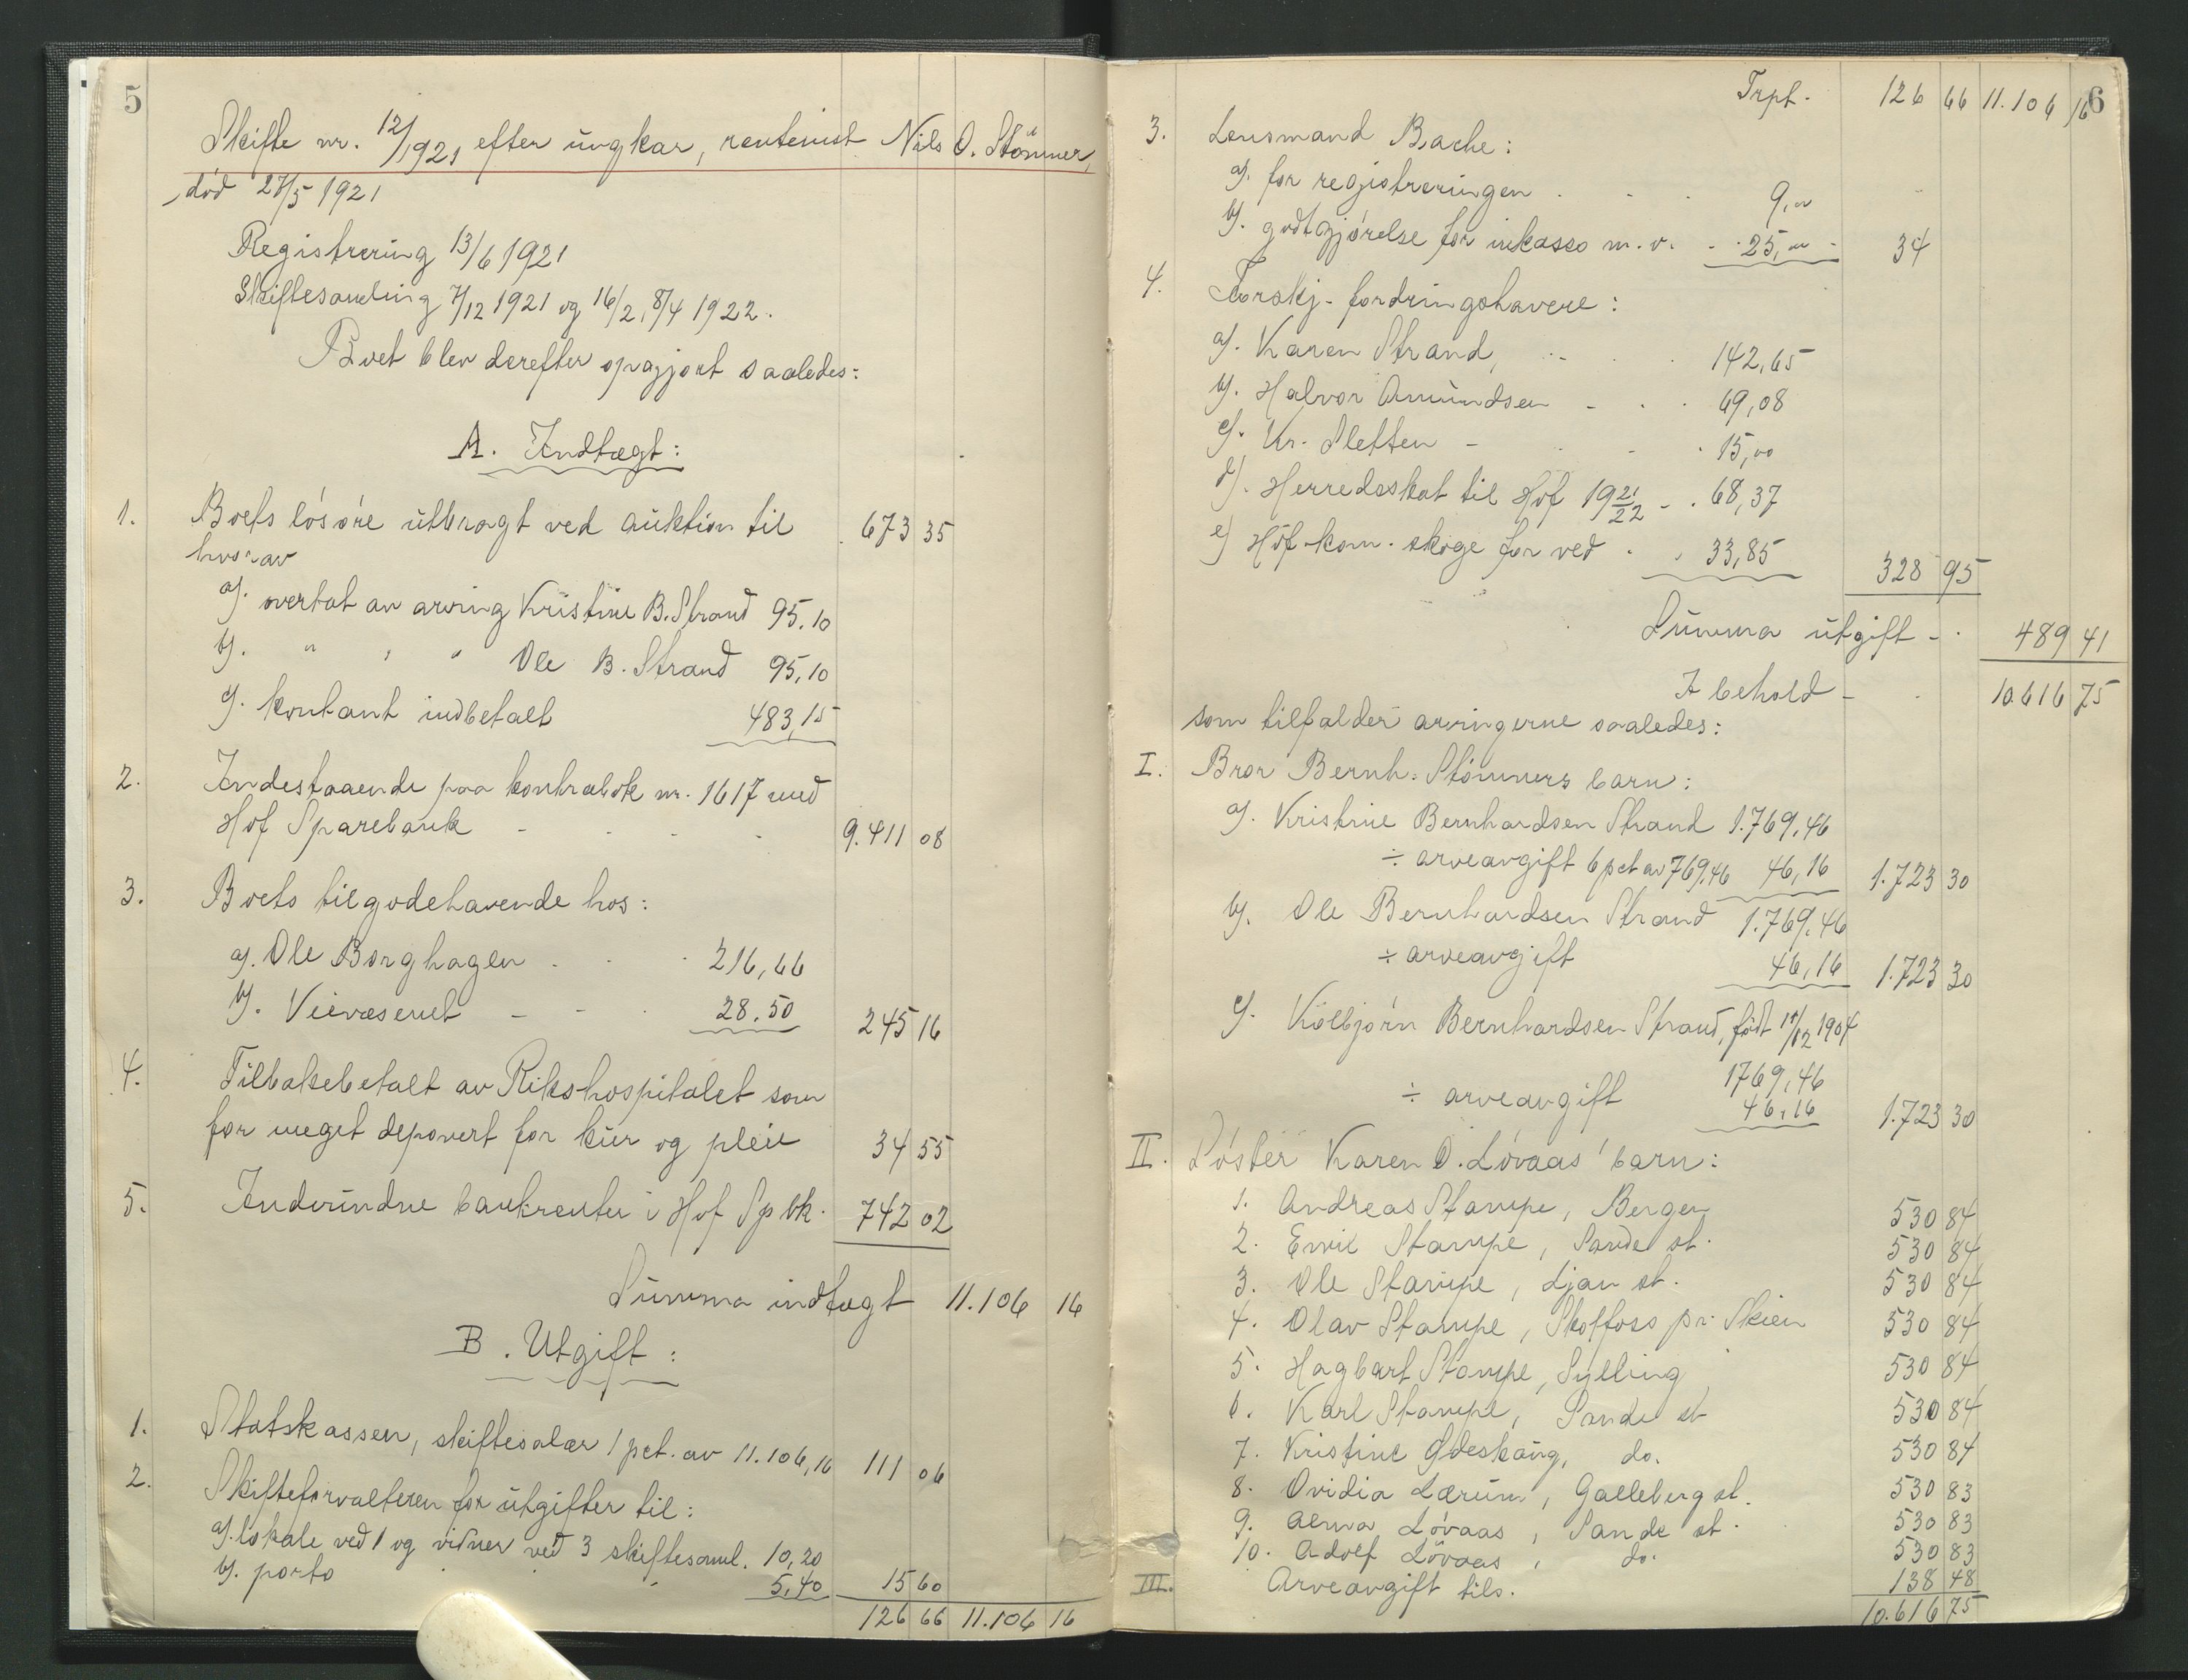 5
Skifte nr. 12/1921 efter ungkar, rentenist Nils O. Stömner,
død 27/5 1921
Registrering 13/6 1921
Skiftesamling 7/12 1921 og 16/2, 8/4 1922.
Boet blev derefter opgjort saaledes:
A. Indtægt:
1. Boets løsøre utbragt ved auktion til 673 35
hvorav
a). overtat av arving Kristine B. Strand 95.10
b). " " " Ole B. Strand 95,10
c). kontant indbetalt 483,15
2. Indestaaende paa kontrabok nr. 1617 med
Hof Sparebank - - - - 9.411 08
3. Boets tilgodehavende hos:
a). Ole Borghagen . . . 216,66
b). Veivæsenet - - . 28.50 245 16
4. Tilbakebetalt av Rikshospitalet som
for meget deponert for kur og pleie 34 55
5. Indvundne bankrenter i Hof Spbk. 742 02
Summa indtægt 11.106 16
B. Utgift:
1. Statskassen, skiftesalær 1 pct. av 11.106,16 111 06
2. Skifteforvalteren for utgifter til:
a). lokale ved 1 og vidner ved 3 skiftesaml. 10,20
b). porto 5,40 15 60
126 66 11.106 16
6
Trpt. 126 66 11.106 16
3. Lensmand Bache:
a). for registreringen . - . 9,00
b). godtgjørelse for inkasso m.v. - . 25,00 - 34
4. Forskj. fordringshavere:
a). Karen Strand, .. . . 142,65
b). Halvor Amundsen - . . 69,08
c). Kr. Sletten - . - . 15,00
d). Herredsskat til Hof 1921/22 - . 68,37
e) Hof kom. skoge for ved . . 33,85 328 95
Summa utgift - . 489 41
I behold - . 10.616 75
som tilfalder arvingerne saaledes:
I. Bror Bernh. Stömners barn:
a). Kristine Bernhardsen Strand 1.769,46
÷ arveavgift 6 pct av 769,46 46,16 1.723 30
b). Ole Bernhardsen Strand 1.769,46
÷ arveavgift 46,16 1.723 30
c). Kolbjørn Bernhardsen Strand, født /12 1904
1769,46
÷ arveavgift 46,16 1.723 30
II. Søster Karen O. Løvaas' barn:
1. Andreas Stampe, Bergen 530 84
2. Emil Stampe, Sande st. 530 84
3. Ole Stampe, Ljan st. 530 84
4. Olav Stampe, Skotfoss pr. Skien 530 84
5. Hagbart Stampe, Sylling 530 84
6. Karl Stampe, Sande st 530 84
7. Kristine Gdeskaug, do. 530 84
8. Ovidia Lærum, Galleberg st. 530 83
9. Alma Løvaas, Sande st. 530 83
10. Adolf Løvaas, do. 530 83
III. Arveavgift tils. 138 48
10.616 75